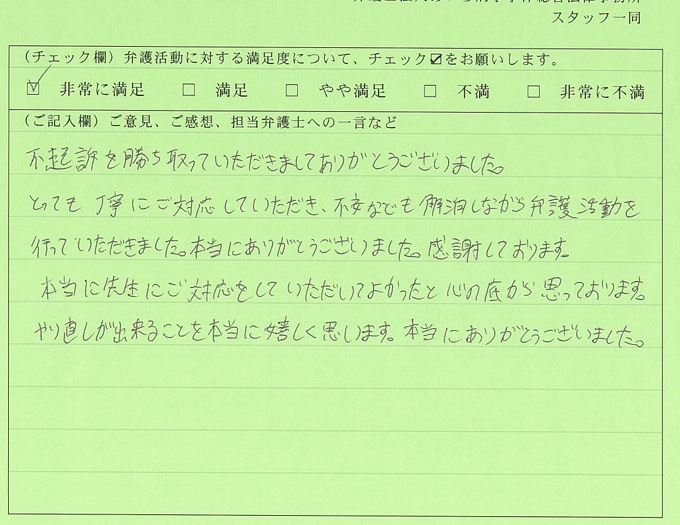 スタッフ一同
（チェック欄）弁護活動に対する満足度について、チェック☑をお願いします。
☑ 非常に満足 □ 満足 □ やや満足 □ 不満 □ 非常に不満
（ご記入欄）ご意見、ご感想、担当弁護士への一言など
不起訴を勝ち取っていただきましてありがとうございました。
とっても丁寧にご対応していただき、不安なども解消しながら弁護活動を
行っていただきました。本当にありがとうございました。感謝しております。
本当に先生にご対応をしていただいてよかったと心の底から思っております。
やり直しが出来ることを本当に嬉しく思います。本当にありがとうございました。